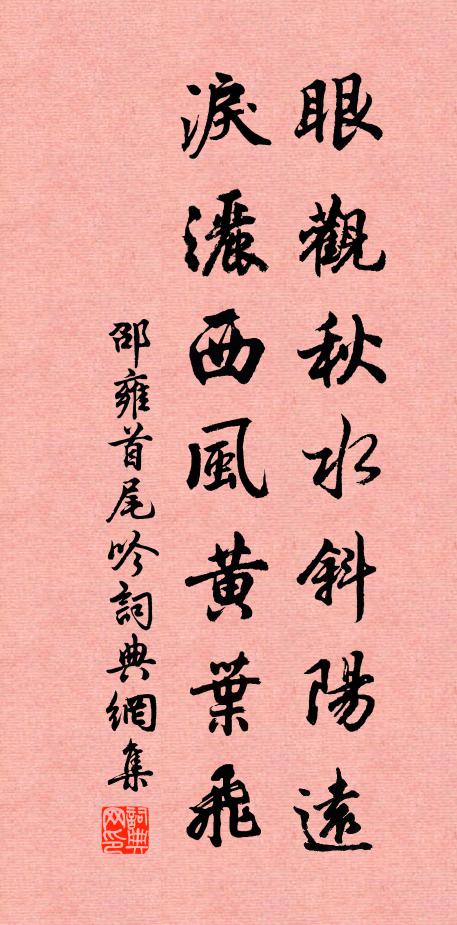 眼觀秋水斜陽遠
淚灑西風黃葉飛
邵雍首尾吟詞典網集
詞典網印